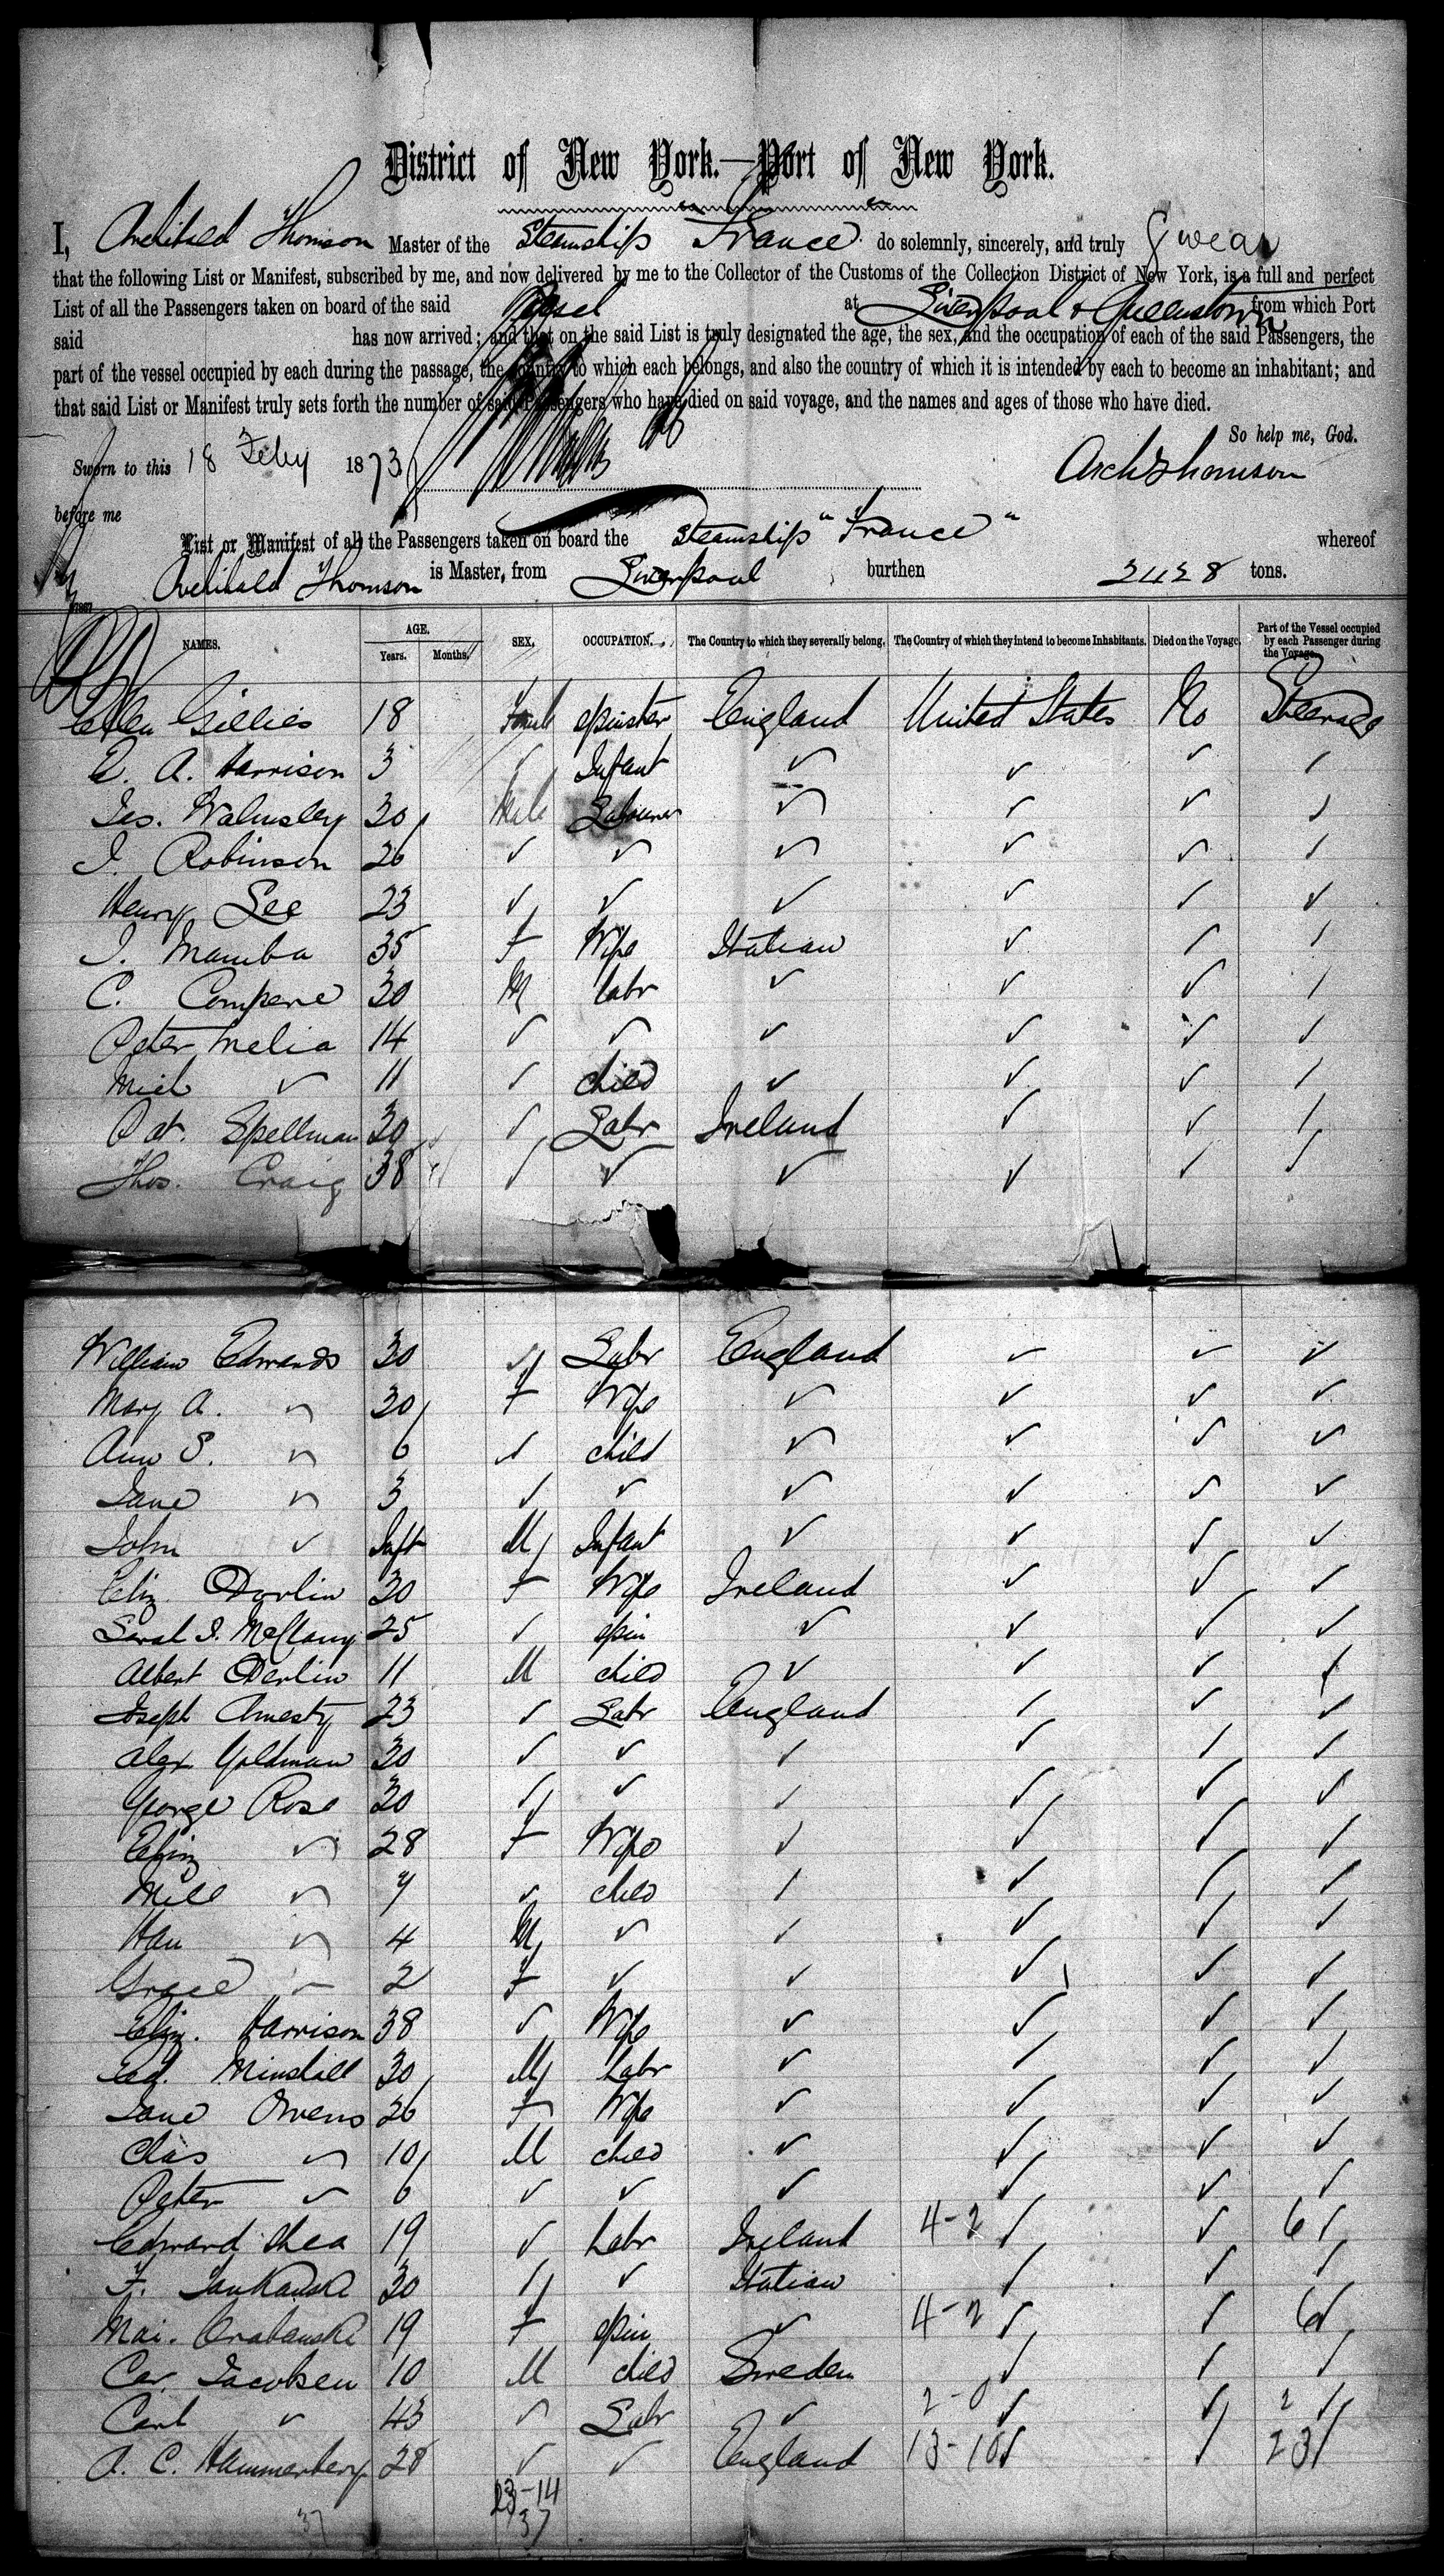 District of New York.—Port of New York.
I, Archibald Thomson Master of the Steamship "France" do solemnly, sincerely, and truly Swear
that the following List or Manifest, subscribed by me, and now delivered by me to the Collector of the Customs of the Collection District of New York, is a full and perfect
List of all the Passengers taken on board of the said Vessel at Liverpool & Queenstown from which Port
said has now arrived; and that on the said List is truly designated the age, the sex, and the occupation of each of the said Passengers, the
part of the vessel occupied by each during the passage, the country to which each belongs, and also the country of which it is intended by each to become an inhabitant; and
that said List or Manifest truly sets forth the number of said Passengers who have died on said voyage, and the names and ages of those who have died.
So help me, God.
Sworn to this 18 Feby 1873 Arch Thomson
before me
List or Manifest of all the Passengers taken on board the Steamship "France" whereof
Archibald Thomson is Master, from Liverpool, burthen 2428 tons.
NAMES. AGE. Years. Months. SEX. OCCUPATION. The Country to which they severally belong. The Country of which they intend to become Inhabitants. Died on the Voyage. Part of the Vessel occupied by each Passenger during the Voyage.
Ellen Gillies 18 Female Spinster England United States No Steerage
E. A. Harrison 3 ✓ Infant ✓ ✓ ✓ ✓
Jas. Walmsley 30 Male Labourer ✓ ✓ ✓ ✓
J. Robinson 26 ✓ ✓ ✓ ✓ ✓ ✓
Henry Lee 23 ✓ ✓ ✓ ✓ ✓ ✓
J. Mamba 35 F Wife Italian ✓ ✓ ✓
C. Compere 30 M Labr ✓ ✓ ✓ ✓
Peter Melia 14 ✓ ✓ ✓ ✓ ✓ ✓
Mich ✓ 11 ✓ child ✓ ✓ ✓ ✓
Pat. Spellman 30 ✓ Labr Ireland ✓ ✓ ✓
Thos. Craig 38 ✓ ✓ ✓ ✓ ✓ ✓
William Edwards 30 M Labr England ✓ ✓ ✓
Mary A. ✓ 30 F Wife ✓ ✓ ✓ ✓
Ann S. ✓ 6 ✓ child ✓ ✓ ✓ ✓
Jane ✓ 3 ✓ ✓ ✓ ✓ ✓ ✓
John ✓ Inft M Infant ✓ ✓ ✓ ✓
Eliz. Dorlin 30 F Wife Ireland ✓ ✓ ✓
Sarah J. 25 ✓ spin ✓ ✓ ✓ ✓
Albert Derlin 11 M child ✓ ✓ ✓ ✓
Joseph Amesty 23 ✓ Labr England ✓ ✓ ✓
Alex Goldman 30 ✓ ✓ ✓ ✓ ✓ ✓
George Rose 30 ✓ ✓ ✓ ✓ ✓ ✓
Eliz ✓ 28 F Wife ✓ ✓ ✓ ✓
Mill ✓ 7 ✓ child ✓ ✓ ✓ ✓
Han ✓ 4 M ✓ ✓ ✓ ✓ ✓
Grace ✓ 2 F ✓ ✓ ✓ ✓ ✓
Eliz. Harrison 38 ✓ Wife ✓ ✓ ✓ ✓
Ed. Minshall 30 M Labr ✓ ✓ ✓ ✓
Jane Owens 26 F Wife ✓ ✓ ✓ ✓
Chas ✓ 10 M child ✓ ✓ ✓ ✓
Peter ✓ 6 ✓ ✓ ✓ ✓ ✓ ✓
Edward Shea 19 ✓ Labr Ireland 4-2 ✓ ✓ 6 ✓
F. Jankauski 30 ✓ ✓ Italian ✓ ✓ ✓
Mai. 19 F spin ✓ 4-2 ✓ ✓ 6 ✓
Car. Jacobsen 10 M child Sweden ✓ ✓ ✓
Carl ✓ 43 ✓ Labr ✓ 2-0 ✓ ✓ 2 ✓
A. C. Hammerberg 28 ✓ ✓ England 13-10 ✓ ✓ 23 ✓
23-14
37 37